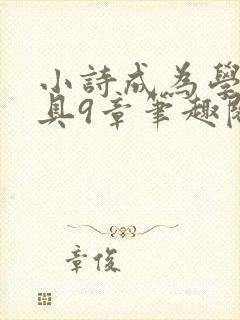 小詩成為學
具9章筆趣閱
章俊